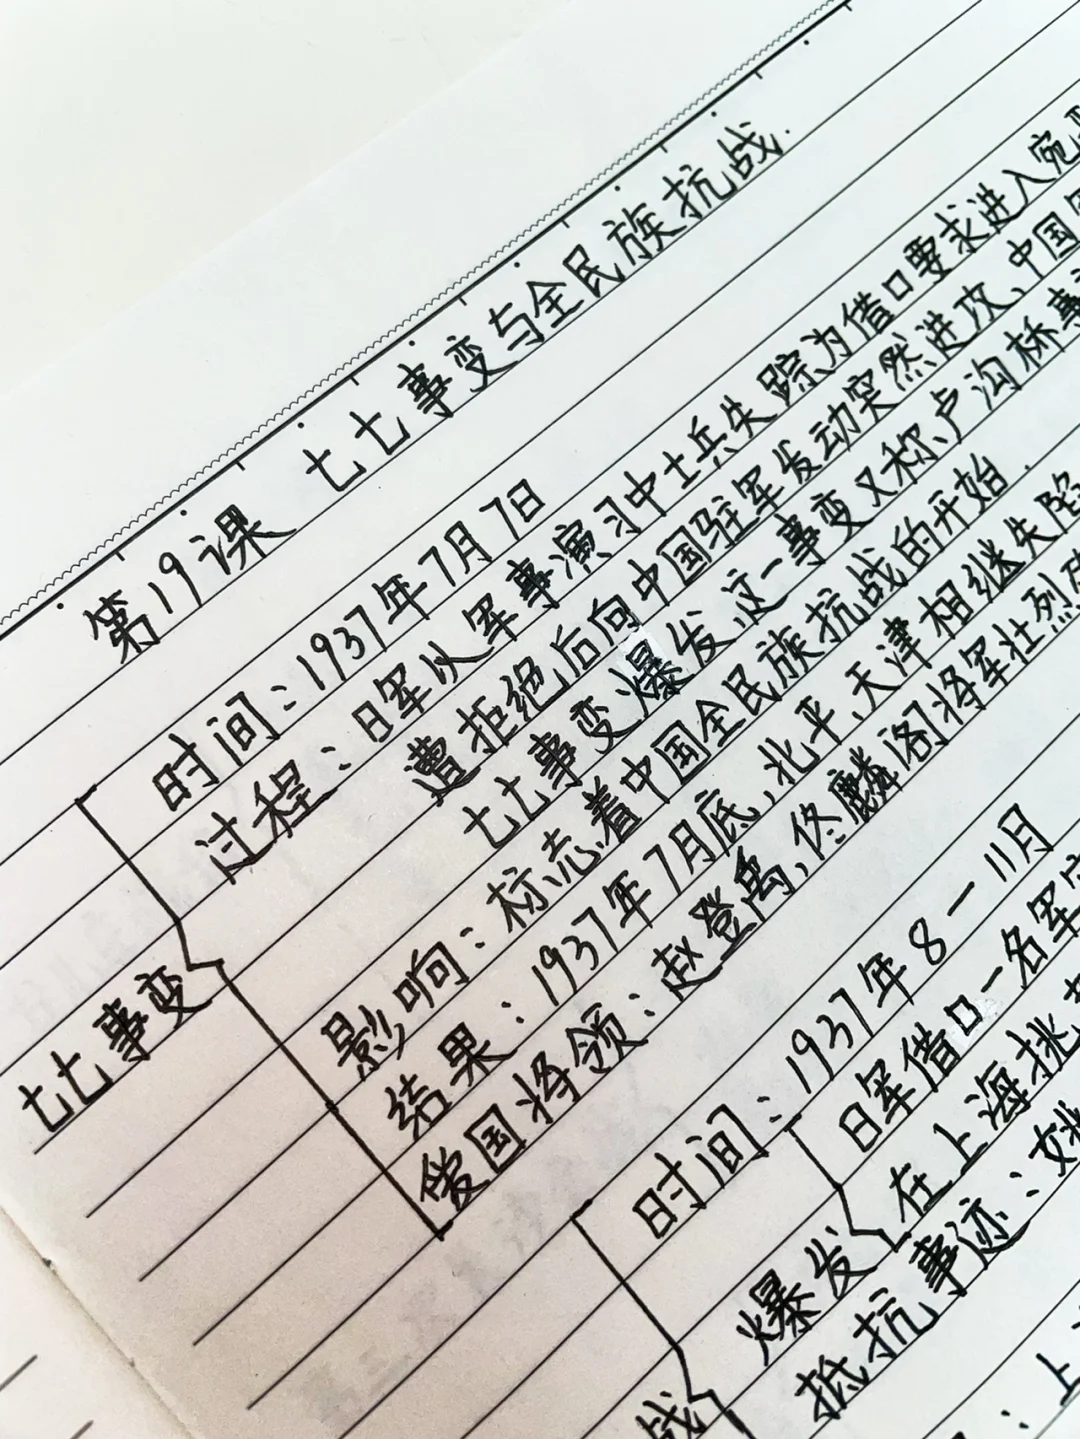 第19课 七七事变与全民族抗战.
时间：1937年7月7日
过程：日军以军事演习中士兵失踪为借口要求进入宛
遭拒绝后向中国驻军发动突然进攻、中国
七七事变爆发，这一事变又称卢沟桥事
影响：标志着中国全民族抗战的开始.
结果：1937年7月底，北平、天津相继失陷
爱国将领：赵登禹，佟麟阁将军壮烈
七七事变
时间：1937年8一11月
日军借口一名军
爆发 在上海挑
抵抗事迹：姚
战
：上